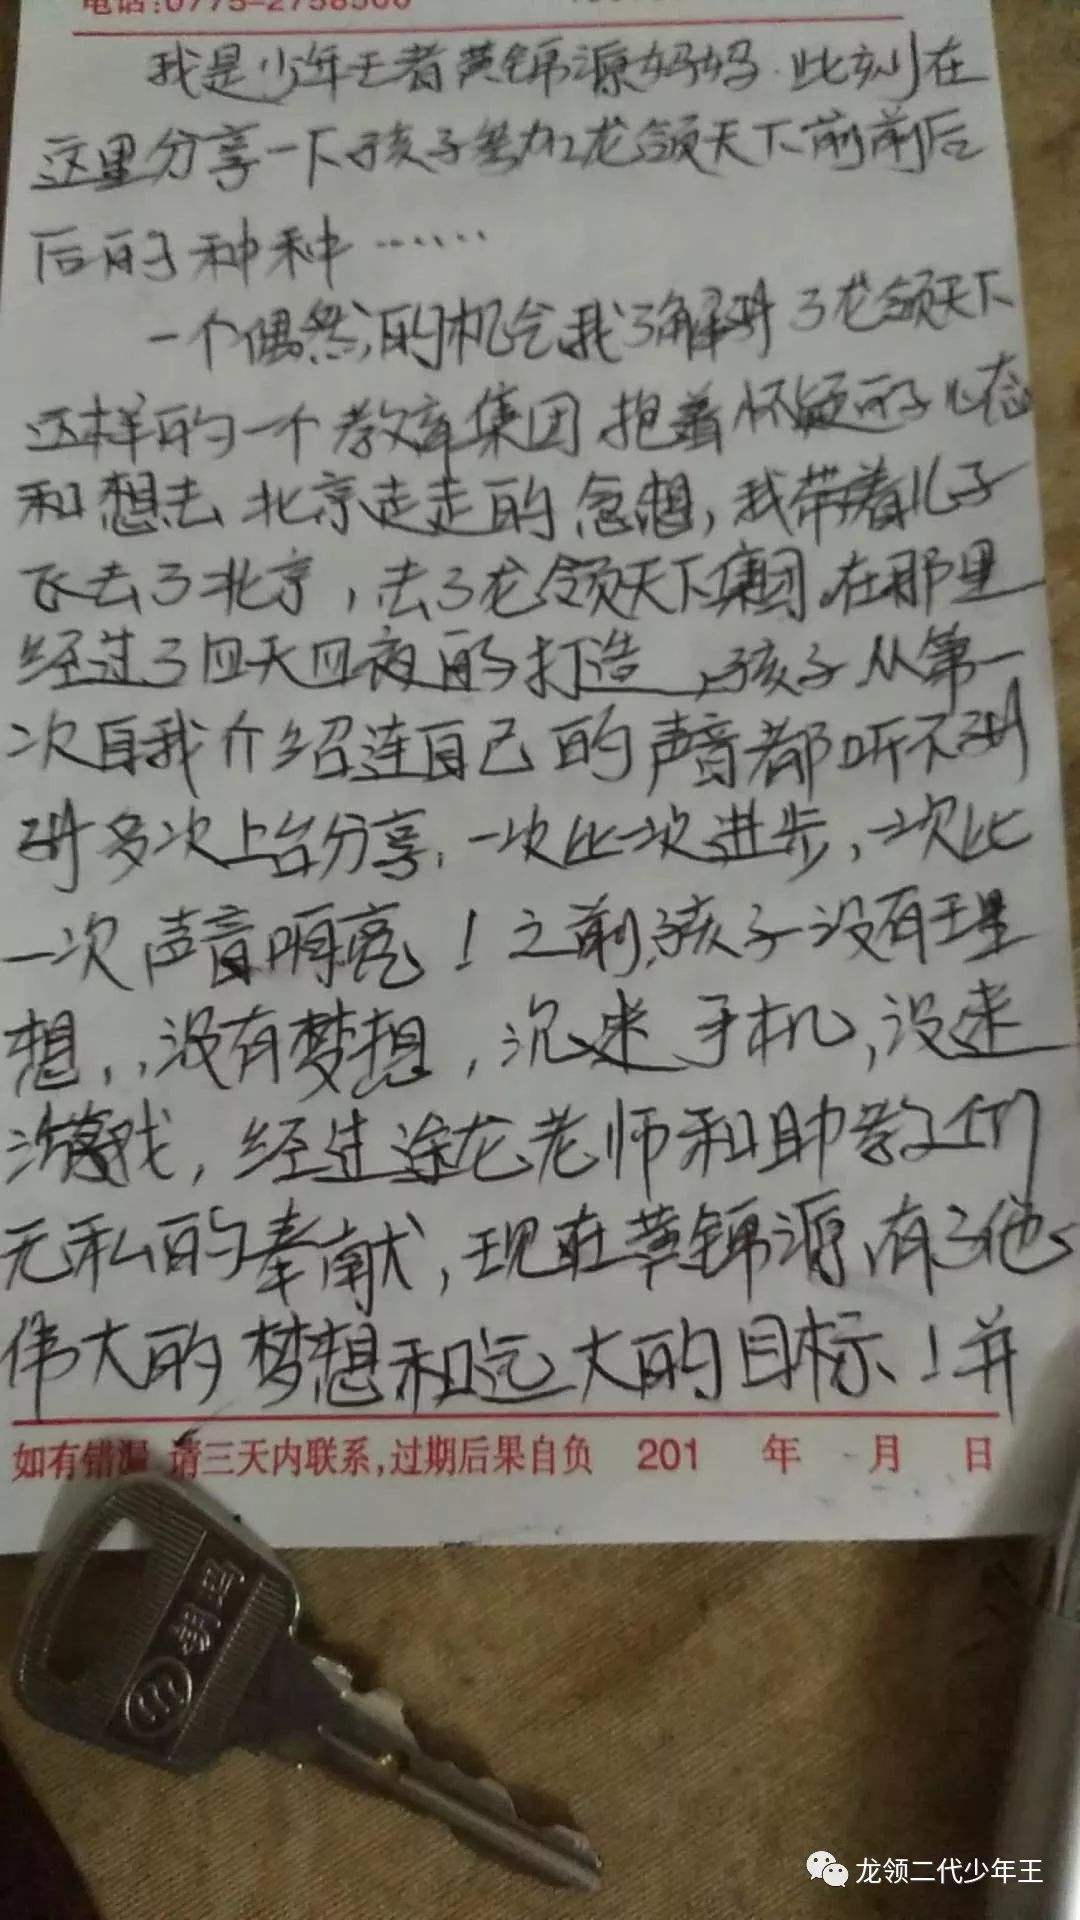 电话:0775-2758500
我是少年王者黄锦源妈妈.此刻在
这里分享一下孩子参加龙领天下前前后
后的种种……
一个偶然的机会我了解到了龙领天下
这样的一个教育集团抱着怀疑的心态
和想去北京走走的念想,我带着儿子
飞去了北京,去了龙领天下集团.在那里
经过了四天四夜的打造,孩子从第一
次自我介绍连自己的声音都听不到
到多次上台分享,一次比一次进步,一次比
一次声音响亮!之前,孩子没有理
想,,没有梦想,沉迷手机,没迷
游戏,经过途龙老师和助教们
无私的奉献,现在黄锦源,有了他
伟大的梦想和远大的目标、!并
如有错漏 请三天内联系,过期后果自负 201 年 月 日
龙领二代少年王